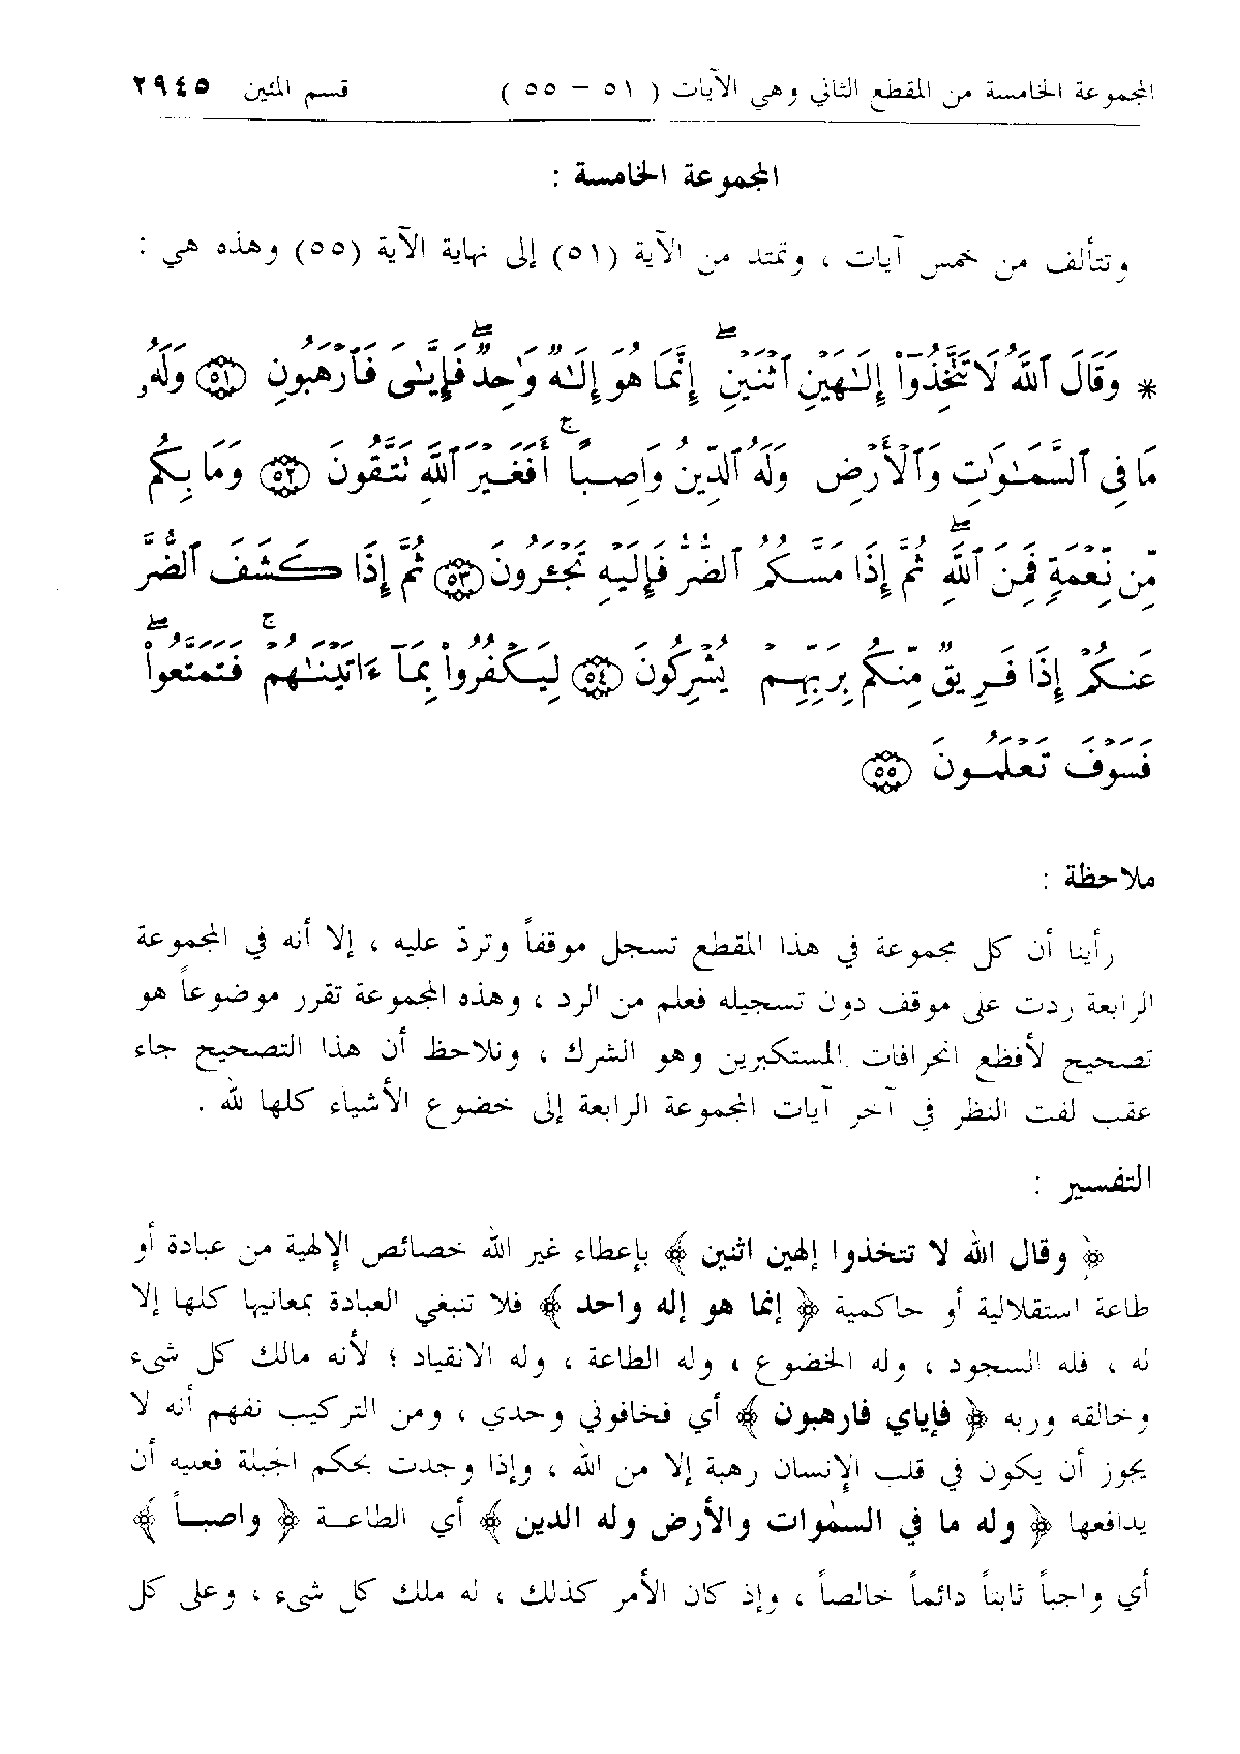 المجموعة الخامسة من المقطع الثاني وهي الآيات ( ٥١ – ٥٥ ) قسم المئين ٢٩٤٥
المجموعة الخامسة :
وتتألف من خمس آيات ، وتمتد من الآية (٥١) إلى نهاية الآية (٥٥) وهذه هي :
* وَقَالَ ٱللَّهُ لَا تَتَّخِذُوٓاْ إِلَٰهَيْنِ ٱثْنَيْنِ ۖ إِنَّمَا هُوَ إِلَٰهٌ وَٰحِدٌ ۖ فَإِيَّٰىَ فَٱرْهَبُونِ ٥١ وَلَهُۥ
مَا فِى ٱلسَّمَٰوَٰتِ وَٱلْأَرْضِ وَلَهُ ٱلدِّينُ وَاصِبًا ۚ أَفَغَيْرَ ٱللَّهِ تَتَّقُونَ ٥٢ وَمَا بِكُم
مِّن نِّعْمَةٍ فَمِنَ ٱللَّهِ ۖ ثُمَّ إِذَا مَسَّكُمُ ٱلضُّرُّ فَإِلَيْهِ تَجْـَٔرُونَ ٥٣ ثُمَّ إِذَا كَشَفَ ٱلضُّرَّ
عَنكُمْ إِذَا فَرِيقٌ مِّنكُم بِرَبِّهِمْ يُشْرِكُونَ ٥٤ لِيَكْفُرُواْ بِمَآ ءَاتَيْنَٰهُمْ ۚ فَتَمَتَّعُواْ ۖ
فَسَوْفَ تَعْلَمُونَ ٥٥
ملاحظة :
رأينا أن كل مجموعة في هذا المقطع تسجل موقفاً وتردّ عليه ، إلا أنه في المجموعة
الرابعة ردت على موقف دون تسجيله فعلم من الرد ، وهذه المجموعة تقرر موضوعاً هو
تصحيح لأفظع انحرافات المستكبرين وهو الشرك ، ونلاحظ أن هذا التصحيح جاء
عقب لفت النظر في آخر آيات المجموعة الرابعة إلى خضوع الأشياء كلها لله .
التفسير :
﴿ وقال الله لا تتخذوا إلهين اثنين ﴾ بإعطاء غير الله خصائص الإلهية من عبادة أو
طاعة استقلالية أو حاكمية ﴿ إنما هو إله واحد ﴾ فلا تنبغي العبادة بمعانيها كلها إلا
له ، فله السجود ، وله الخضوع ، وله الطاعة ، وله الانقياد ؛ لأنه مالك كل شىء
وخالقه وربه ﴿ فإياي فارهبون ﴾ أي فخافوني وحدي ، ومن التركيب نفهم أنه لا
يجوز أن يكون في قلب الإنسان رهبة إلا من الله ، وإذا وجدت بحكم الجبلة فعليه أن
يدافعها ﴿ وله ما في السمٰوات والأرض وله الدين ﴾ أي الطاعة ﴿ واصباً ﴾
أي واجباً ثابتاً دائماً خالصاً ، وإذ كان الأمر كذلك ، له ملك كل شىء ، وعلى كل